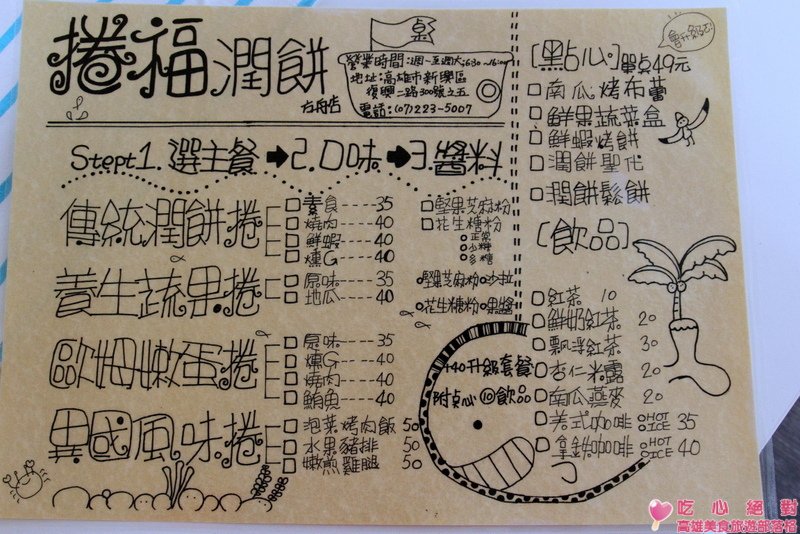 捲福潤餅
方舟店
桌
營業時間:週一至週六6:30~16:00
地址:高雄市新興區
復興二路300號之五
電話:(07)223-5007
Stept1.選主餐➡2.口味➡3.醬料
傳統潤餅捲
素食----35
燒肉----40
鮮蝦----40
燻G----40
堅果芝麻粉
花生糖粉
正常
少糖
多糖
養生蔬果捲
原味----35
地瓜----40
堅果芝麻粉 沙拉
花生糖粉 果醬
歐姆嫩蛋捲
原味----35
燻G----40
燒肉----40
鮪魚----40
異國風味捲
泡菜烤肉飯 50
水果豬排 50
嫩煎雞腿 50
+40升級套餐
附点心 10飲品
[點心]單点49元
南瓜烤布蕾
鮮果蔬菜盒
鮮蝦烤餅
潤餅聖代
潤餅鬆餅
[飲品]
紅茶 10
鮮奶紅茶 20
飄浮紅茶 30
杏仁米露 20
南瓜燕麥 20
美式咖啡 HOT ICE 35
拿鐵咖啡 HOT ICE 40
吃心絕對
高雄美食旅遊部落格